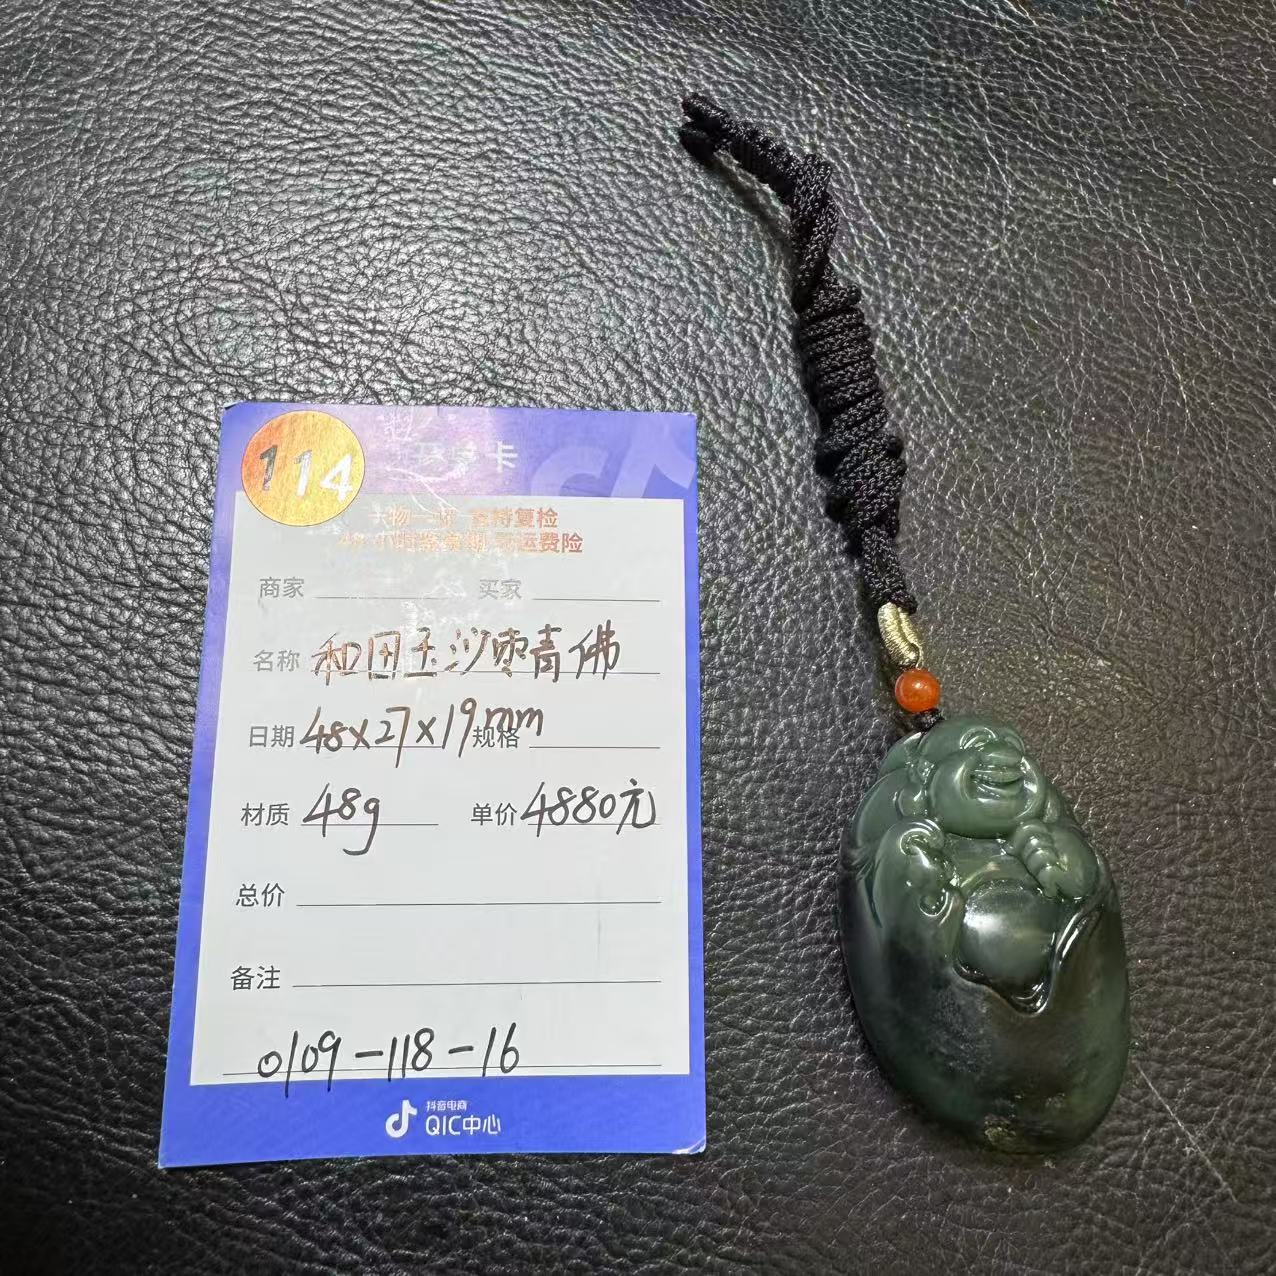 114
卡
一物一证 支持复检
运费险
商家 买家
名称 和田玉沙枣青佛
日期 48x27x19mm 规格
材质 48g 单价 4880元
总价
备注
0109-118-16
抖音电商
QIC中心